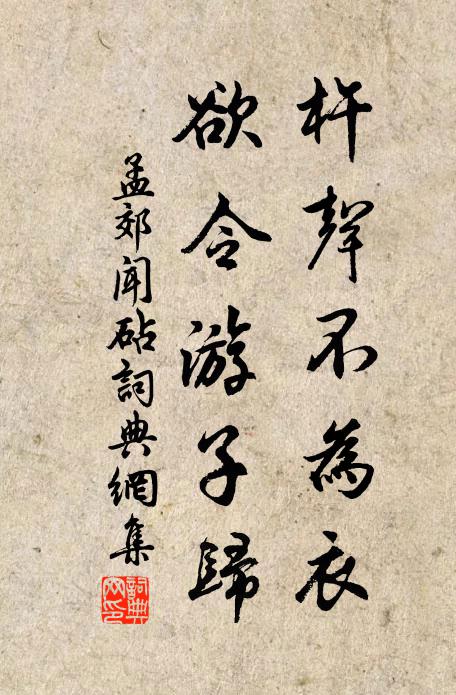 杵聲不為衣
欲令游子歸
孟郊聞砧詞典網集
詞典